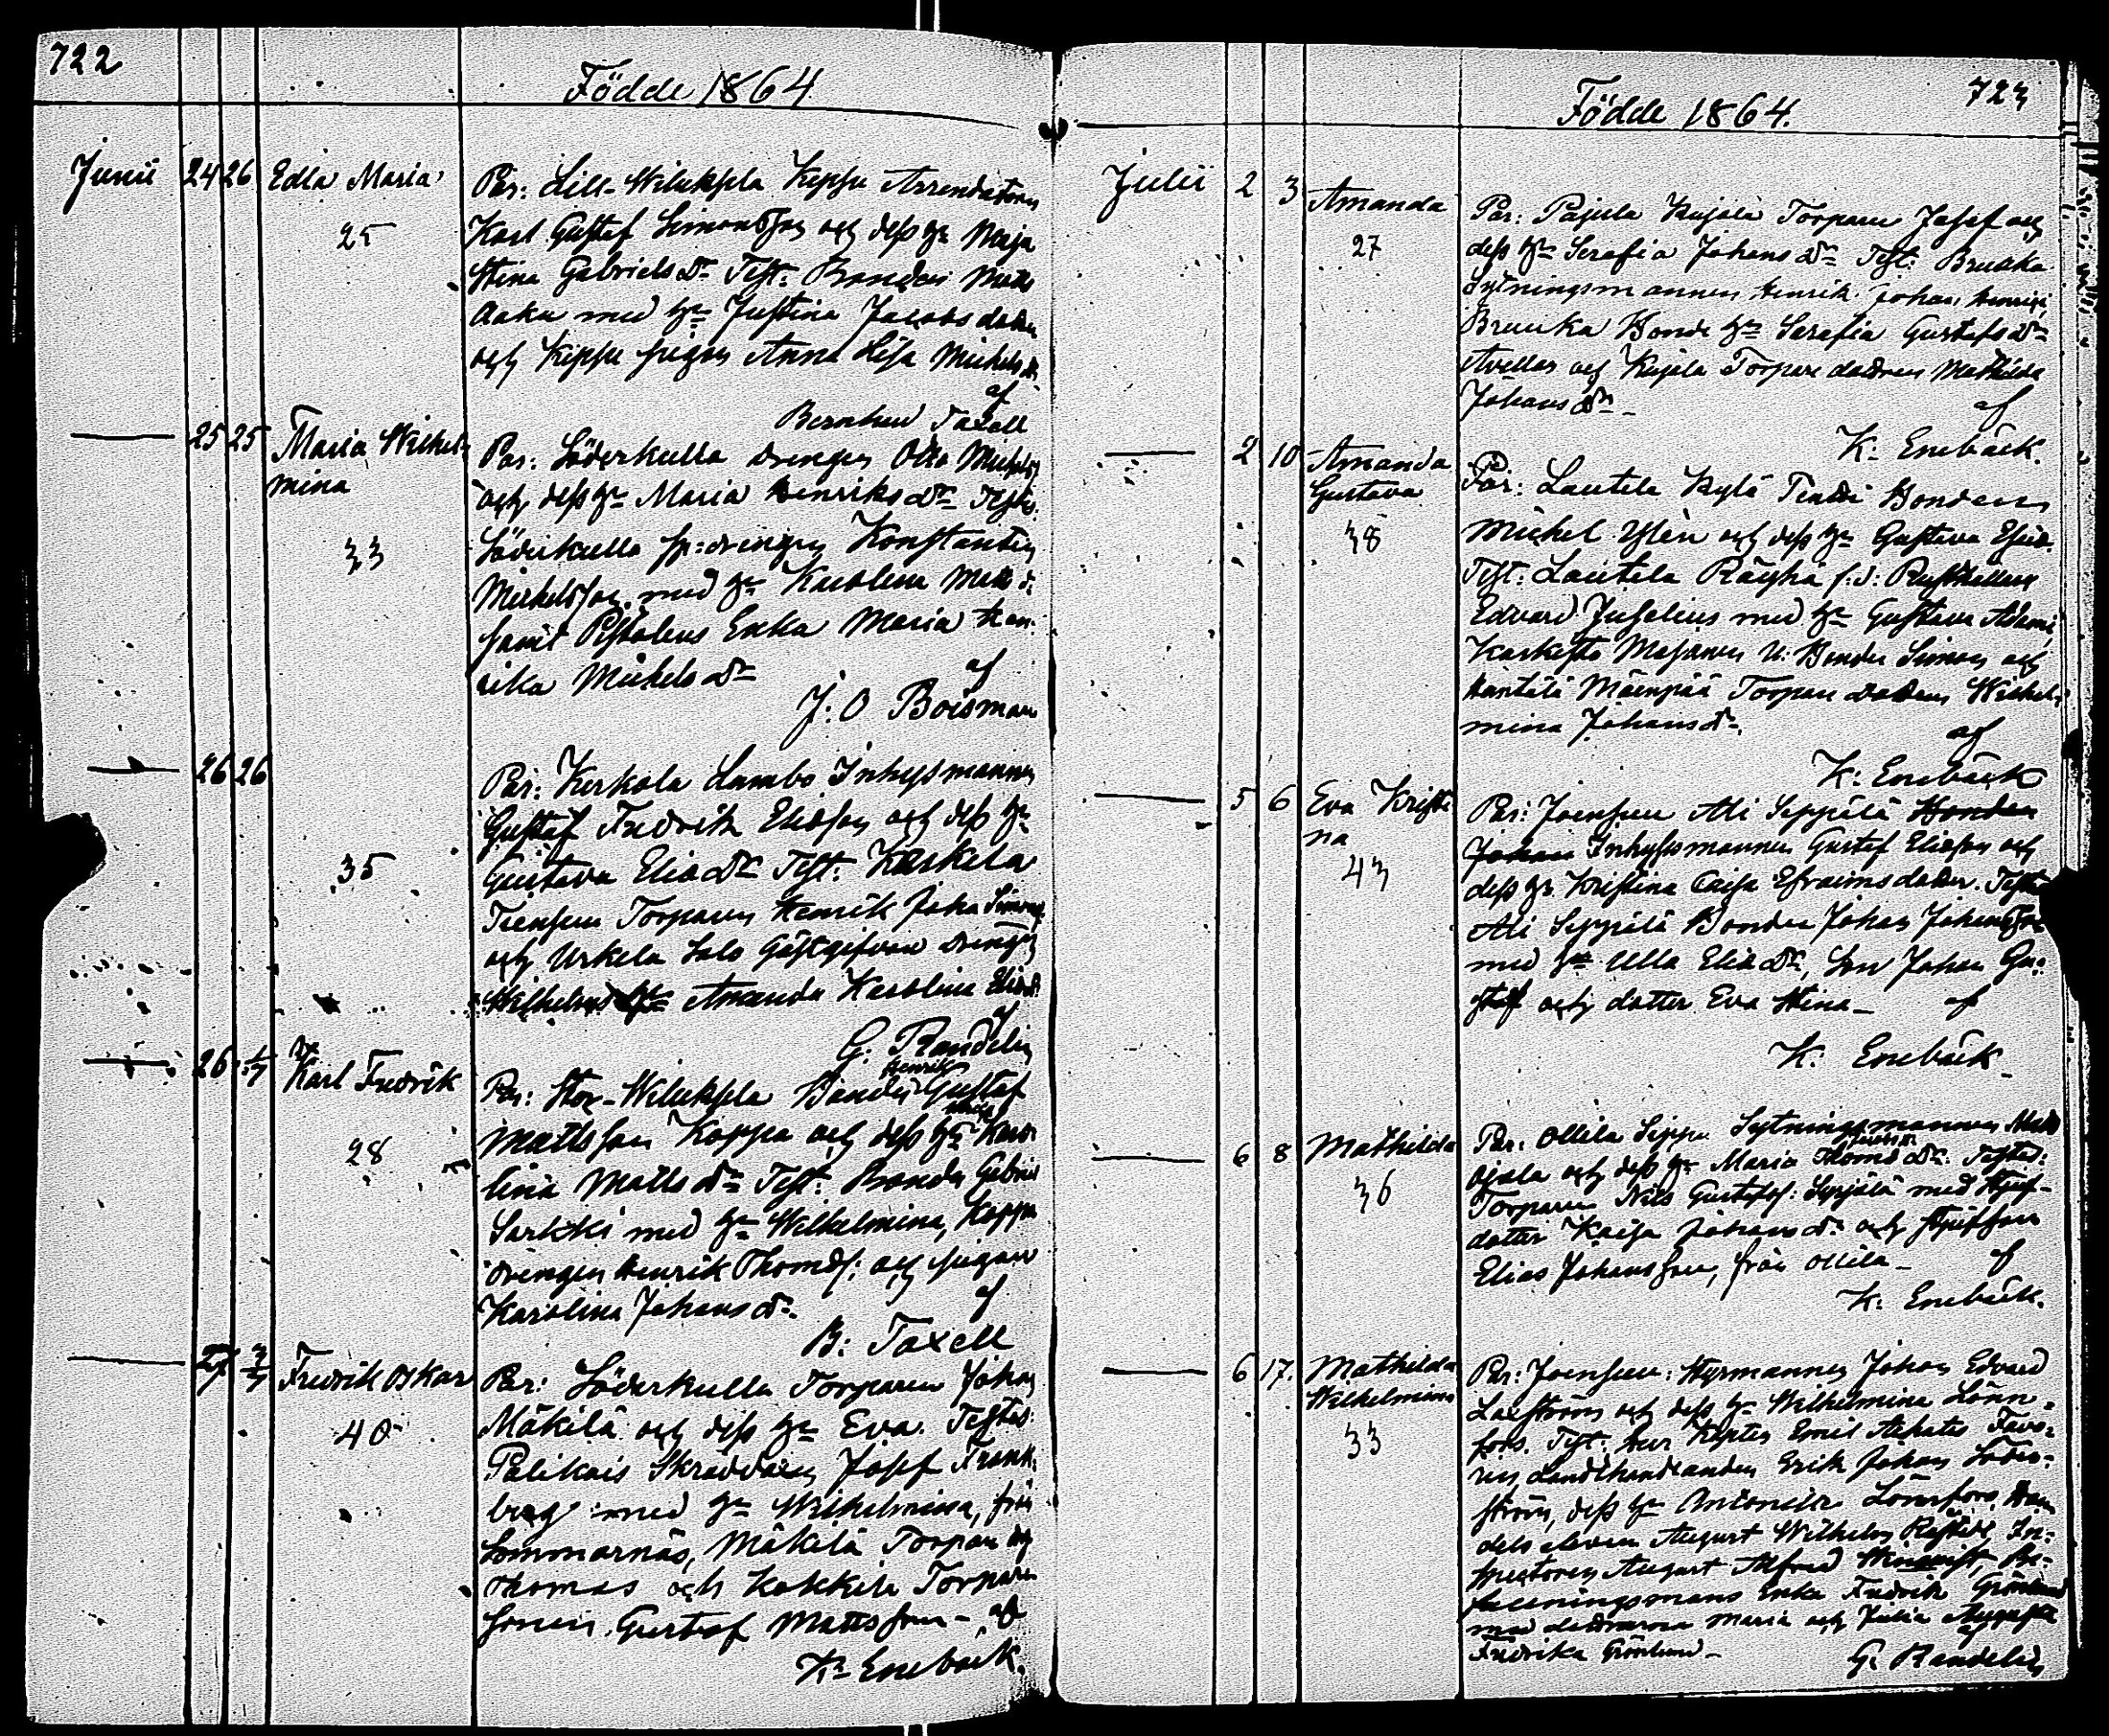 722
Födde 1864
Junii 24 26 Edla Maria
25
Par: Lill-Wiluksela Keppu Arrendatorn
Karl Gustaf Simonsson och dess hu Maja
Stina Gabriels dr Test: Bonden Matts
Aaku med hu Justina Jacobs dotter
och Keppu pigan Anna Lisa Michels dr
af
Bernhard Taxell
25 25 Maria Wilhel-
mina
33
Par: Söderkulla drengen Otto Michels
och dess hu Maria Henriks dr Test:
Söderkulla drengen Konstantin
Michelsson med hu Karolina Matts d:
samt Enka Maria Hen-
rika Michels dr
af
J: O Boisman
26 26
35
Par: Kerkola Lambo Inhysmannen
Gustaf Fredrik Eliasson och dess hu
Gustava Elias dr Test: Kaskela
Torparen Henrik Joha Simons
och Urkela Salo Gästgifvare drengen
Wilhelms hu Amanda Karolina Elias d:
af
G: Randelin
26 1/7 Karl Fredrik
28
Par: Stor-Wiluksela Bonden Henrik Gustaf
Mattsson Koppa och dess hu Karo-
lina Matts dr Test: Bonden Gabriel
Sarkki med hu Wilhelmina, Koppa
drengen Henrik Thomass: och pigan
Karolina Johans dr.
af
B: Taxell
27 3/7 Fredrik Oskar
40
Par: Söderkulla Torparen Johan
Mäkilä och dess hu Eva. Testes:
Palikais Skräddaren Josef Frank-
berg med hu Wilhelmina, från
Sommarnäs, Mäkilä Torpare
Thomas och Kakkila Torpare
sonen Gustaf Mattsson - af
K: Enebäck.
723
Födde 1864.
Julii 2 3 Amanda
27
Par: Pajula Kujala Torparen Josef och
dess hu Serafia Johans dr Test: Bruuka
Sytningsmannen Henrik Johan Henriss,
Bruuka Bonde hu Serafia Gustafs dr
Avellan och Kujala Torpare dottren Mathilda
Johans dr -
af
K: Enebäck.
2 10 Amanda
Gustava
38
Par: Lautela Kylä Penddi Bonden
Michel Ylén och dess hu Gustava Esaias.
Test: Lautela Räyhä f:d: Rusthållare
Edvard Juselius med hu Gustava Adami,
Karkisto Majanen U: Bonden Simon och
Hantilä Mäenpää Torpare dottren Wilhel-
mina Johans dr.
af
K: Enebäck
5 6 Eva Kristi-
na
43
Par: Joensuu Ali Seppälä Bonden
Johan Inhysesmannen Gustaf Eliasson och
dess hu Kristina Caisa Efraims dotter. Test:
Ali Seppälä Bonden Johan Johansson
med hu Ulla Elias dr, Son Johan Gu-
staf och dotter Eva Stina -
af
K: Enebäck
6 8 Mathilda
36
Par: Ollila Seppu Sytningsmannen Matts
Ojala och dess hu Maria Thomas dr: Testes:
Torparen Nils Gustafss: Seppälä med Stjuf-
dotter Kaisa Johans dr och stjufson
Elias Johansson, från Ollila -
af
K: Enebäck.
6 17. Mathilda
Wilhelmina
33
Par: Joensuu: Styrmannen Johan Edvard
Laeström och dess hu Wilhelmina Lönn-
fors. Test: herr Kapten Emil Achates Favo-
rin Landthandlanden Erik Johan Söder-
ström, dess hu Antonette Lönnfors, Han-
dels eleven August Wilhelm In-
spectoren August Alfred Winqvist, Be-
fallningsmans Enka Fredrika Grönlund
med döttrarna Maria och Julia Augusta
Fredrika Grönlund -
af
G: Randelin